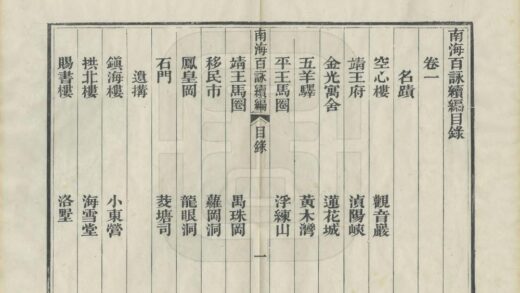 南海百詠續編目錄
卷一
名蹟
空心樓 觀音巖
靖王府 湞陽峽
金光寓舍 蓮花城
五羊驛 黃木灣
平王馬圈 浮練山
南海百詠續編 目錄 一
靖王馬圈 禺珠岡
移民市 蘿岡洞
鳳皇岡 龍眼洞
石門 菱塘司
遺搆
鎮海樓 小東營
拱北樓 海雪堂
賜書樓 洛墅